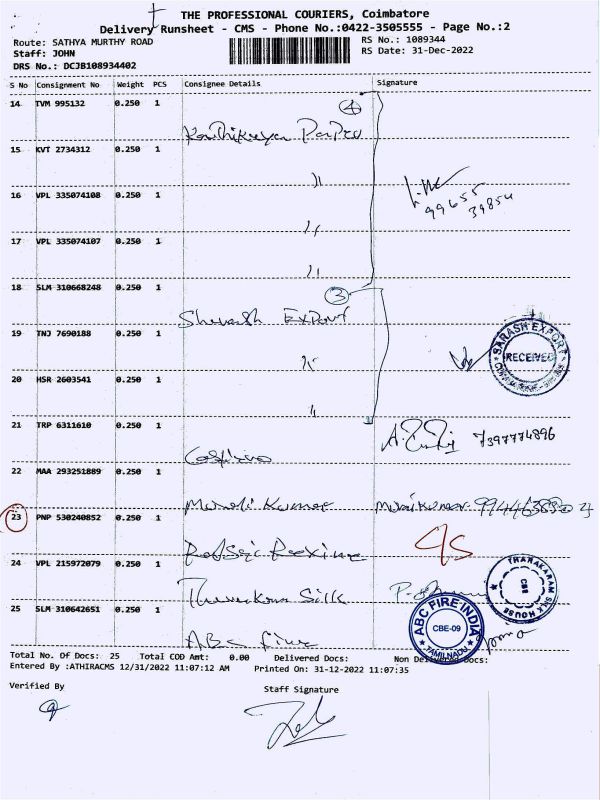 THE PROFESSIONAL COURIERS, Coimbatore
Delivery Runsheet - CMS - Phone No.:0422-3505555 - Page No.:2
Route: SATHYA MURTHY ROAD
RS No.: 1089344
Staff: JOHN
RS Date: 31-Dec-2022
DRS No.: DCJB108934402
S No Consignment No Weight PCS Consignee Details Signature
14 TVM 995132 0.250 1
4
15 KVT 2734312 0.250 1
16 VPL 335074108 0.250 1
99655
39854
17 VPL 335074107 0.250 1
18 SLM 310668248 0.250 1
3
Export
19 TNJ 7690188 0.250 1
SARASH EXPORT
RECEIVED
20 HSR 2603541 0.250 1
21 TRP 6311610 0.250 1
7397774896
22 MAA 293251889 0.250 1
Murali Kumar
23 PNP 530240852 0.250 1
24 VPL 215972079 0.250 1
Silk
THARAKARAM SILK HOUSE
CBE
25 SLM 310642651 0.250 1
ABC Fire
ABC FIRE INDIA
CBE-09
TAMILNADU
Total No. Of Docs: 25 Total COD Amt: 0.00 Delivered Docs: Non Delivered Docs:
Entered By :ATHIRACMS 12/31/2022 11:07:12 AM Printed On: 31-12-2022 11:07:35
Verified By
Staff Signature